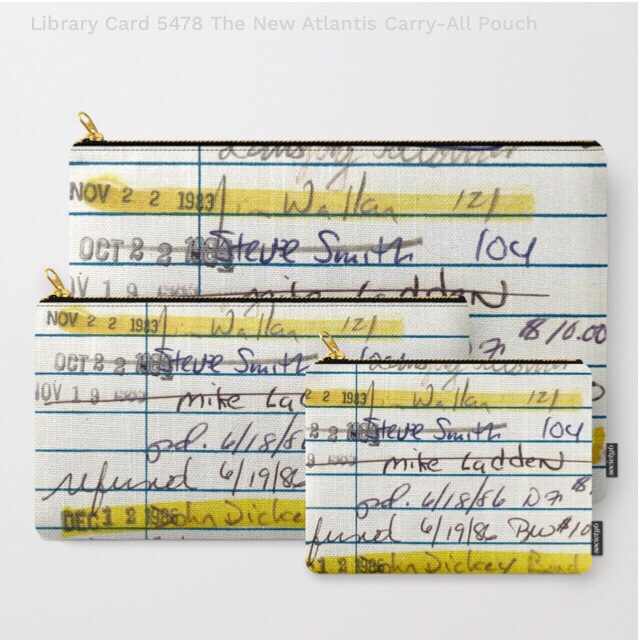 Library Card 5478 The New Atlantis Carry-All Pouch
NOV 2 2 1983 Jim Wallan 121
OCT 2 2 Steve Smith 104
NOV 1 9 mike Ladden
$10.00
NOV 2 2 1983 Jim Wallan 121
OCT 2 2 Steve Smith
NOV 1 9 mike Lad
pd. 6/18/8
refund 6/19/86
DEC 1 2 1986 John Dickey
2 2 1983 Jim Wallan 121
2 2 Steve Smith 104
9 mike Ladden
pd. 6/18/86 $
fund 6/19/86 $10
1 2 1986 John Dickey Band
society6
society6